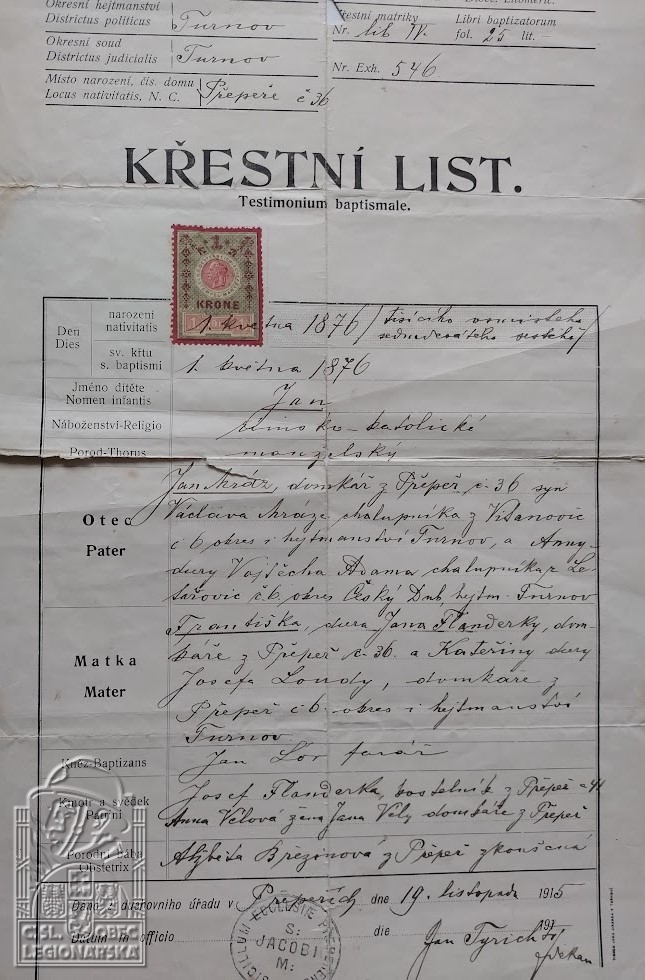 Okresní hejtmanství
Districtus politicus Turnov
Okresní soud
Districtus judicialis Turnov
Místo narození, čís. domu
Locus nativitatis, N. C. Přepeře č 36
Dioec. Litoměř.
Křestní matriky Libri baptizatorum
Nr. lib IV. fol. 25 lit. —
Nr. Exh. 546
KŘESTNÍ LIST.
Testimonium baptismale.
1
KRONE
Den
Dies
narození
nativitatis
1. května 1876 / tisícího osmistého
sedmdesátého šestého /
sv. křtu
s. baptismi
1. května 1876
Jméno dítěte
Nomen infantis
Jan
Náboženství-Religio římsko-katolické
Porod-Thorus manželský
Otec
Pater
Jan Mráz, domkář z Přepeř č. 36 syn
Václava Mráze chalupníka z
č 6 okres i hejtmanství Turnov, a Anny
dcery Vojtěcha Adama chalupníka z Le-
tařovic č. 6. okres Český Dub, hejtm. Turnov
Matka
Mater
Františka, dcera Jana Flanderky, dom-
káře z Přepeř č. 36. a Kateřiny dcery
Josefa Loudy, domkáře z
Přepeř č 6. okres i hejtmanství
Turnov.
Kněz-Baptizans Jan farář
Kmotři a svědek
Patrini
Josef Flanderka, kostelník z Přepeř 41
Anna Velová žena Jana Vely domkáře z Přepeř
Porodní bába
Obstetrix
Alžběta Březinová z Přepeř zkoušená
Dáno z duchovního úřadu v Přepeřích dne 19. listopadu 1915
Datum in officio die 191
Jan Tyrich
děkan
SIGILLUM ECCLESIE
S:
JACOBI
M:
ČSL. OBEC
LEGIONÁŘSKÁ